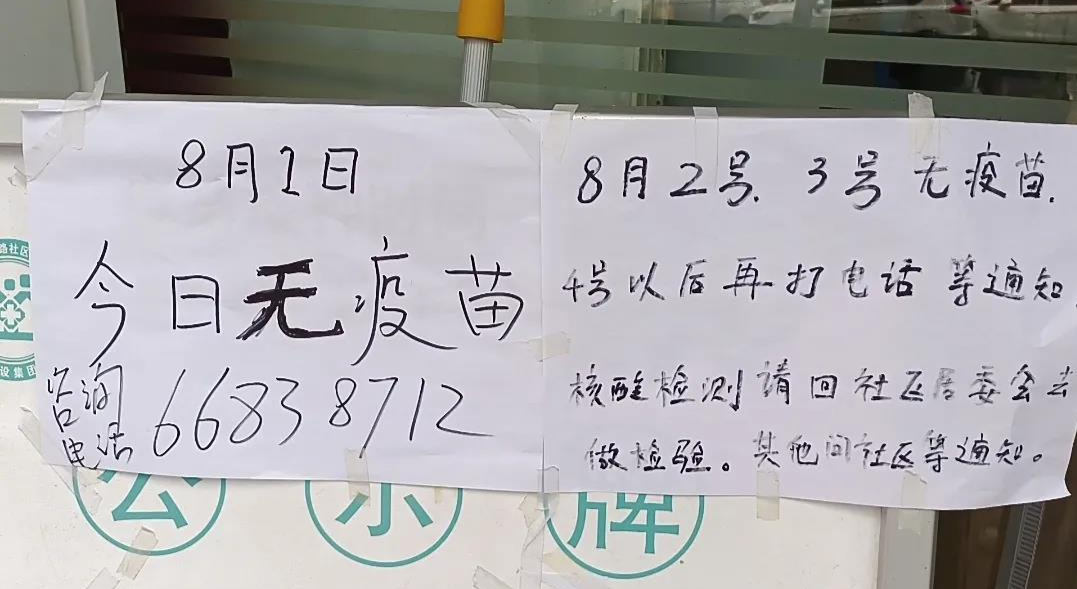 8月1日
今日无疫苗
咨询
电话 66838712
8月2号. 3号无疫苗.
4号以后再打电话 等通知
核酸检测请回社区居委会去
做检验。其他问社区等通知。
路社区
设集团
公示牌